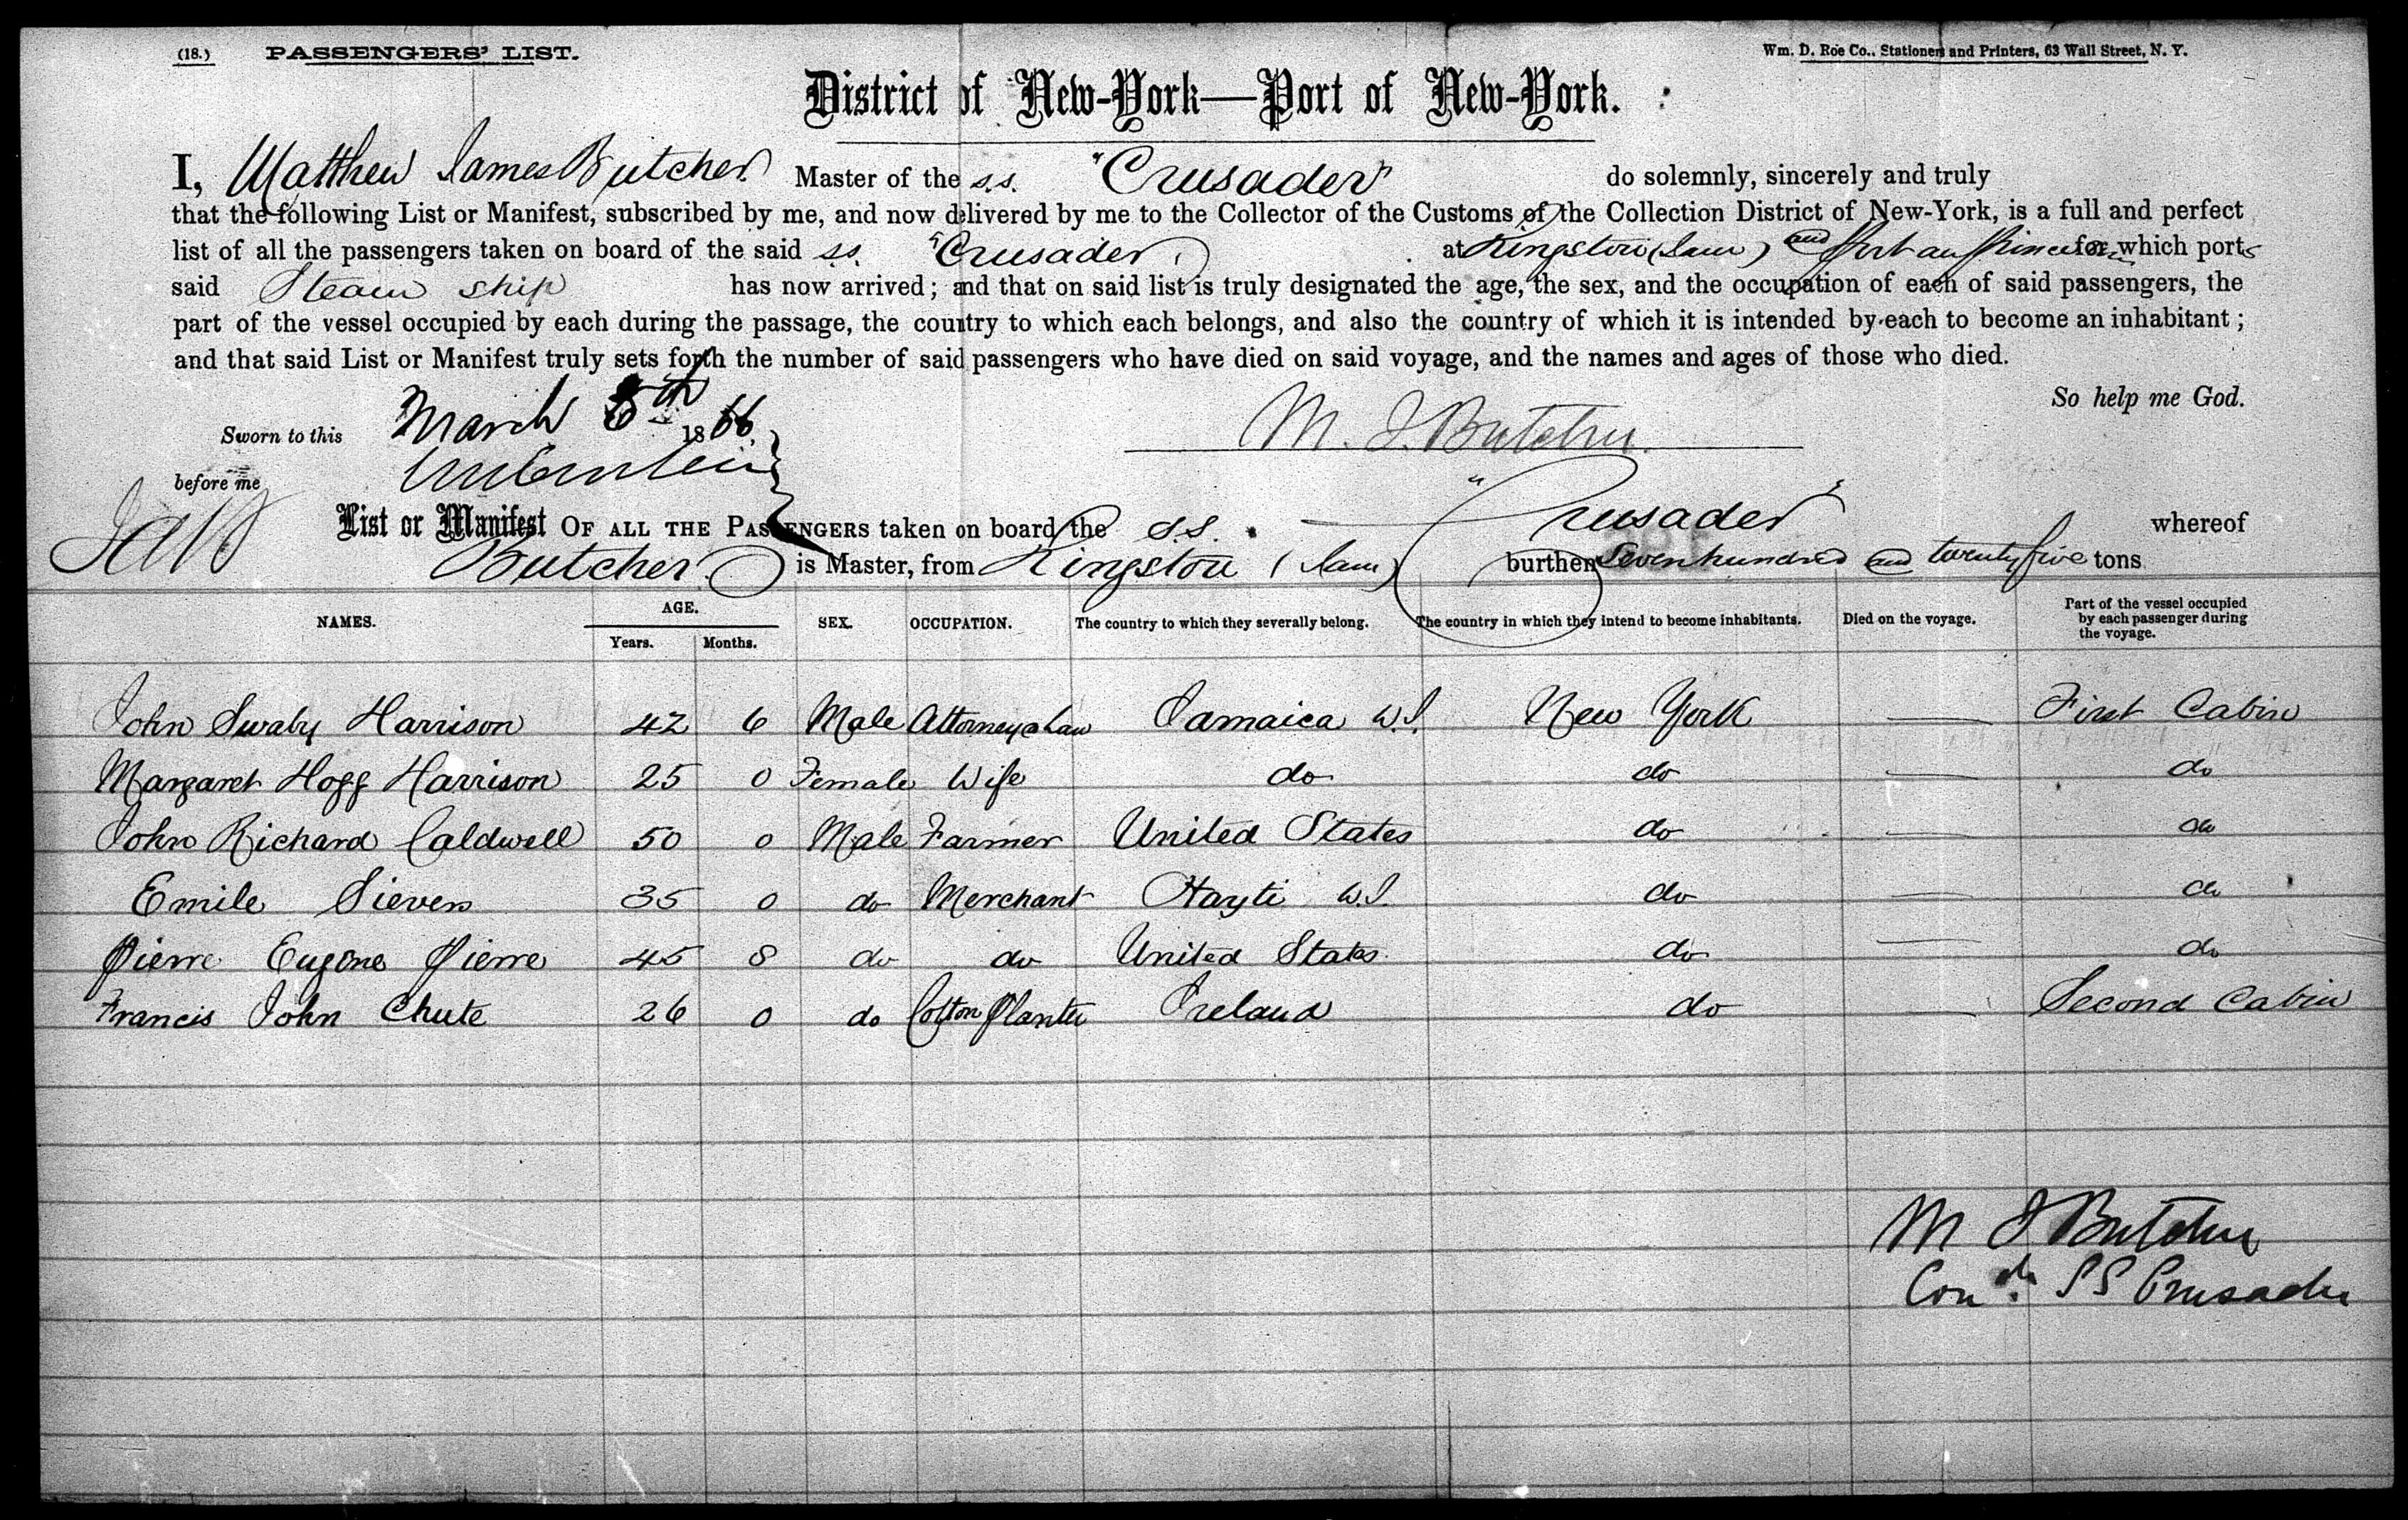 (18.) PASSENGERS' LIST. Wm. D. Roe Co., Stationers and Printers, 63 Wall Street, N. Y.
District of New-York—Port of New-York.
I, Matthew James Butcher Master of the s.s. "Crusader" do solemnly, sincerely and truly
that the following List or Manifest, subscribed by me, and now delivered by me to the Collector of the Customs of the Collection District of New-York, is a full and perfect
list of all the passengers taken on board of the said s.s. "Crusader" at Kingston (Jam) and Port au Prince from which ports
said Steam ship has now arrived; and that on said list is truly designated the age, the sex, and the occupation of each of said passengers, the
part of the vessel occupied by each during the passage, the country to which each belongs, and also the country of which it is intended by each to become an inhabitant;
and that said List or Manifest truly sets forth the number of said passengers who have died on said voyage, and the names and ages of those who died.
So help me God.
Sworn to this March 8th 1866. M. J. Butcher
before me
List or Manifest OF ALL THE PASSENGERS taken on board the s.s. "Crusader" whereof
Butcher is Master, from Kingston (Jam) burthen Seven hundred and twenty five tons
NAMES. AGE. SEX. OCCUPATION. The country to which they severally belong. The country in which they intend to become inhabitants. Died on the voyage. Part of the vessel occupied by each passenger during the voyage.
Years. Months.
John Swaby Harrison 42 6 Male Attorney a Law Jamaica W.I. New York — First Cabin
Margaret Hogg Harrison 25 0 Female Wife do do — do
John Richard Caldwell 50 0 Male Farmer United States do — do
Emile Sievers 35 0 do Merchant Hayti W.I. do — do
Pierre Eugene Pierre 45 8 do do United States do — do
Francis John Chute 26 0 do Cotton Planter Ireland do — Second Cabin
M J Butcher
SS Crusader